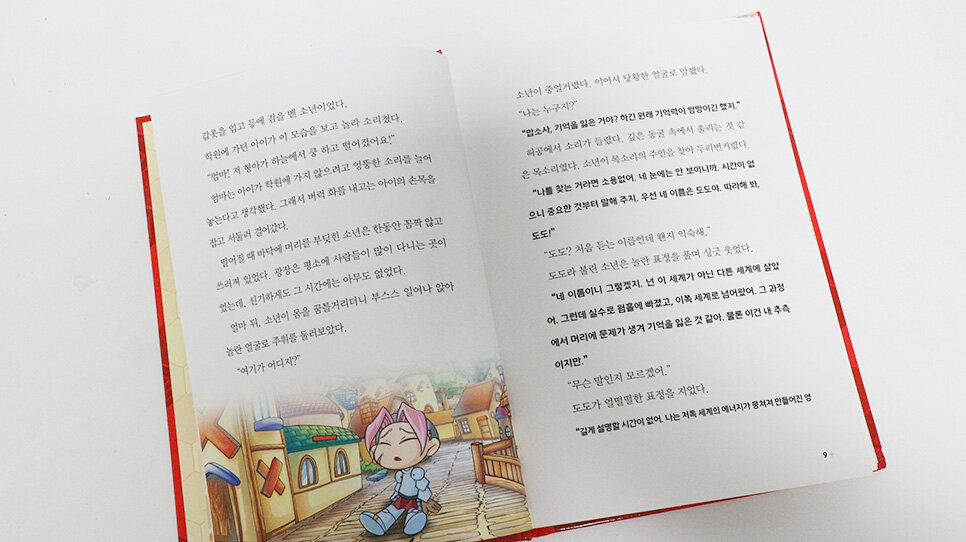 갑옷을 입고 등에 검을 멘 소년이었다.
학원에 가던 아이가 이 모습을 보고 놀라 소리쳤다.
“엄마! 저 형아가 하늘에서 쿵 하고 떨어졌어요!”
엄마는 아이가 학원에 가지 않으려고 엉뚱한 소리를 늘어
놓는다고 생각했다. 그래서 버럭 화를 내고는 아이의 손목을
잡고 서둘러 걸어갔다.
떨어질 때 바닥에 머리를 부딪힌 소년은 한동안 꼼짝 않고
쓰러져 있었다. 광장은 평소에 사람들이 많이 다니는 곳이
었는데, 신기하게도 그 시간에는 아무도 없었다.
얼마 뒤, 소년이 몸을 꿈틀거리더니 부스스 일어나 앉아
놀란 얼굴로 주위를 둘러보았다.
“여기가 어디지?”
소년이 중얼거렸다. 이어서 당황한 얼굴로 말했다.
“나는 누구지?”
“맙소사, 기억을 잃은 거야? 하긴 원래 기억력이 엉망이긴 했지.”
허공에서 소리가 들렸다. 깊은 동굴 속에서 울리는 것 같
은 목소리였다. 소년이 목소리의 주인을 찾아 두리번거렸다.
“나를 찾는 거라면 소용없어. 네 눈에는 안 보이니까. 시간이 없
으니 중요한 것부터 말해 주지. 우선 네 이름은 도도야. 따라해 봐,
도도!”
“도도? 처음 듣는 이름인데 왠지 익숙해.”
도도라 불린 소년은 놀란 표정을 풀며 싱긋 웃었다.
“네 이름이니 그렇겠지. 넌 이 세계가 아닌 다른 세계에 살았
어. 그런데 실수로 웜홀에 빠졌고, 이쪽 세계로 넘어왔어. 그 과정
에서 머리에 문제가 생겨 기억을 잃은 것 같아. 물론 이건 내 추측
이지만.”
“무슨 말인지 모르겠어.”
도도가 얼떨떨한 표정을 지었다.
“길게 설명할 시간이 없어. 나는 저쪽 세계의 에너지가 뭉쳐져 만들어진 영
9